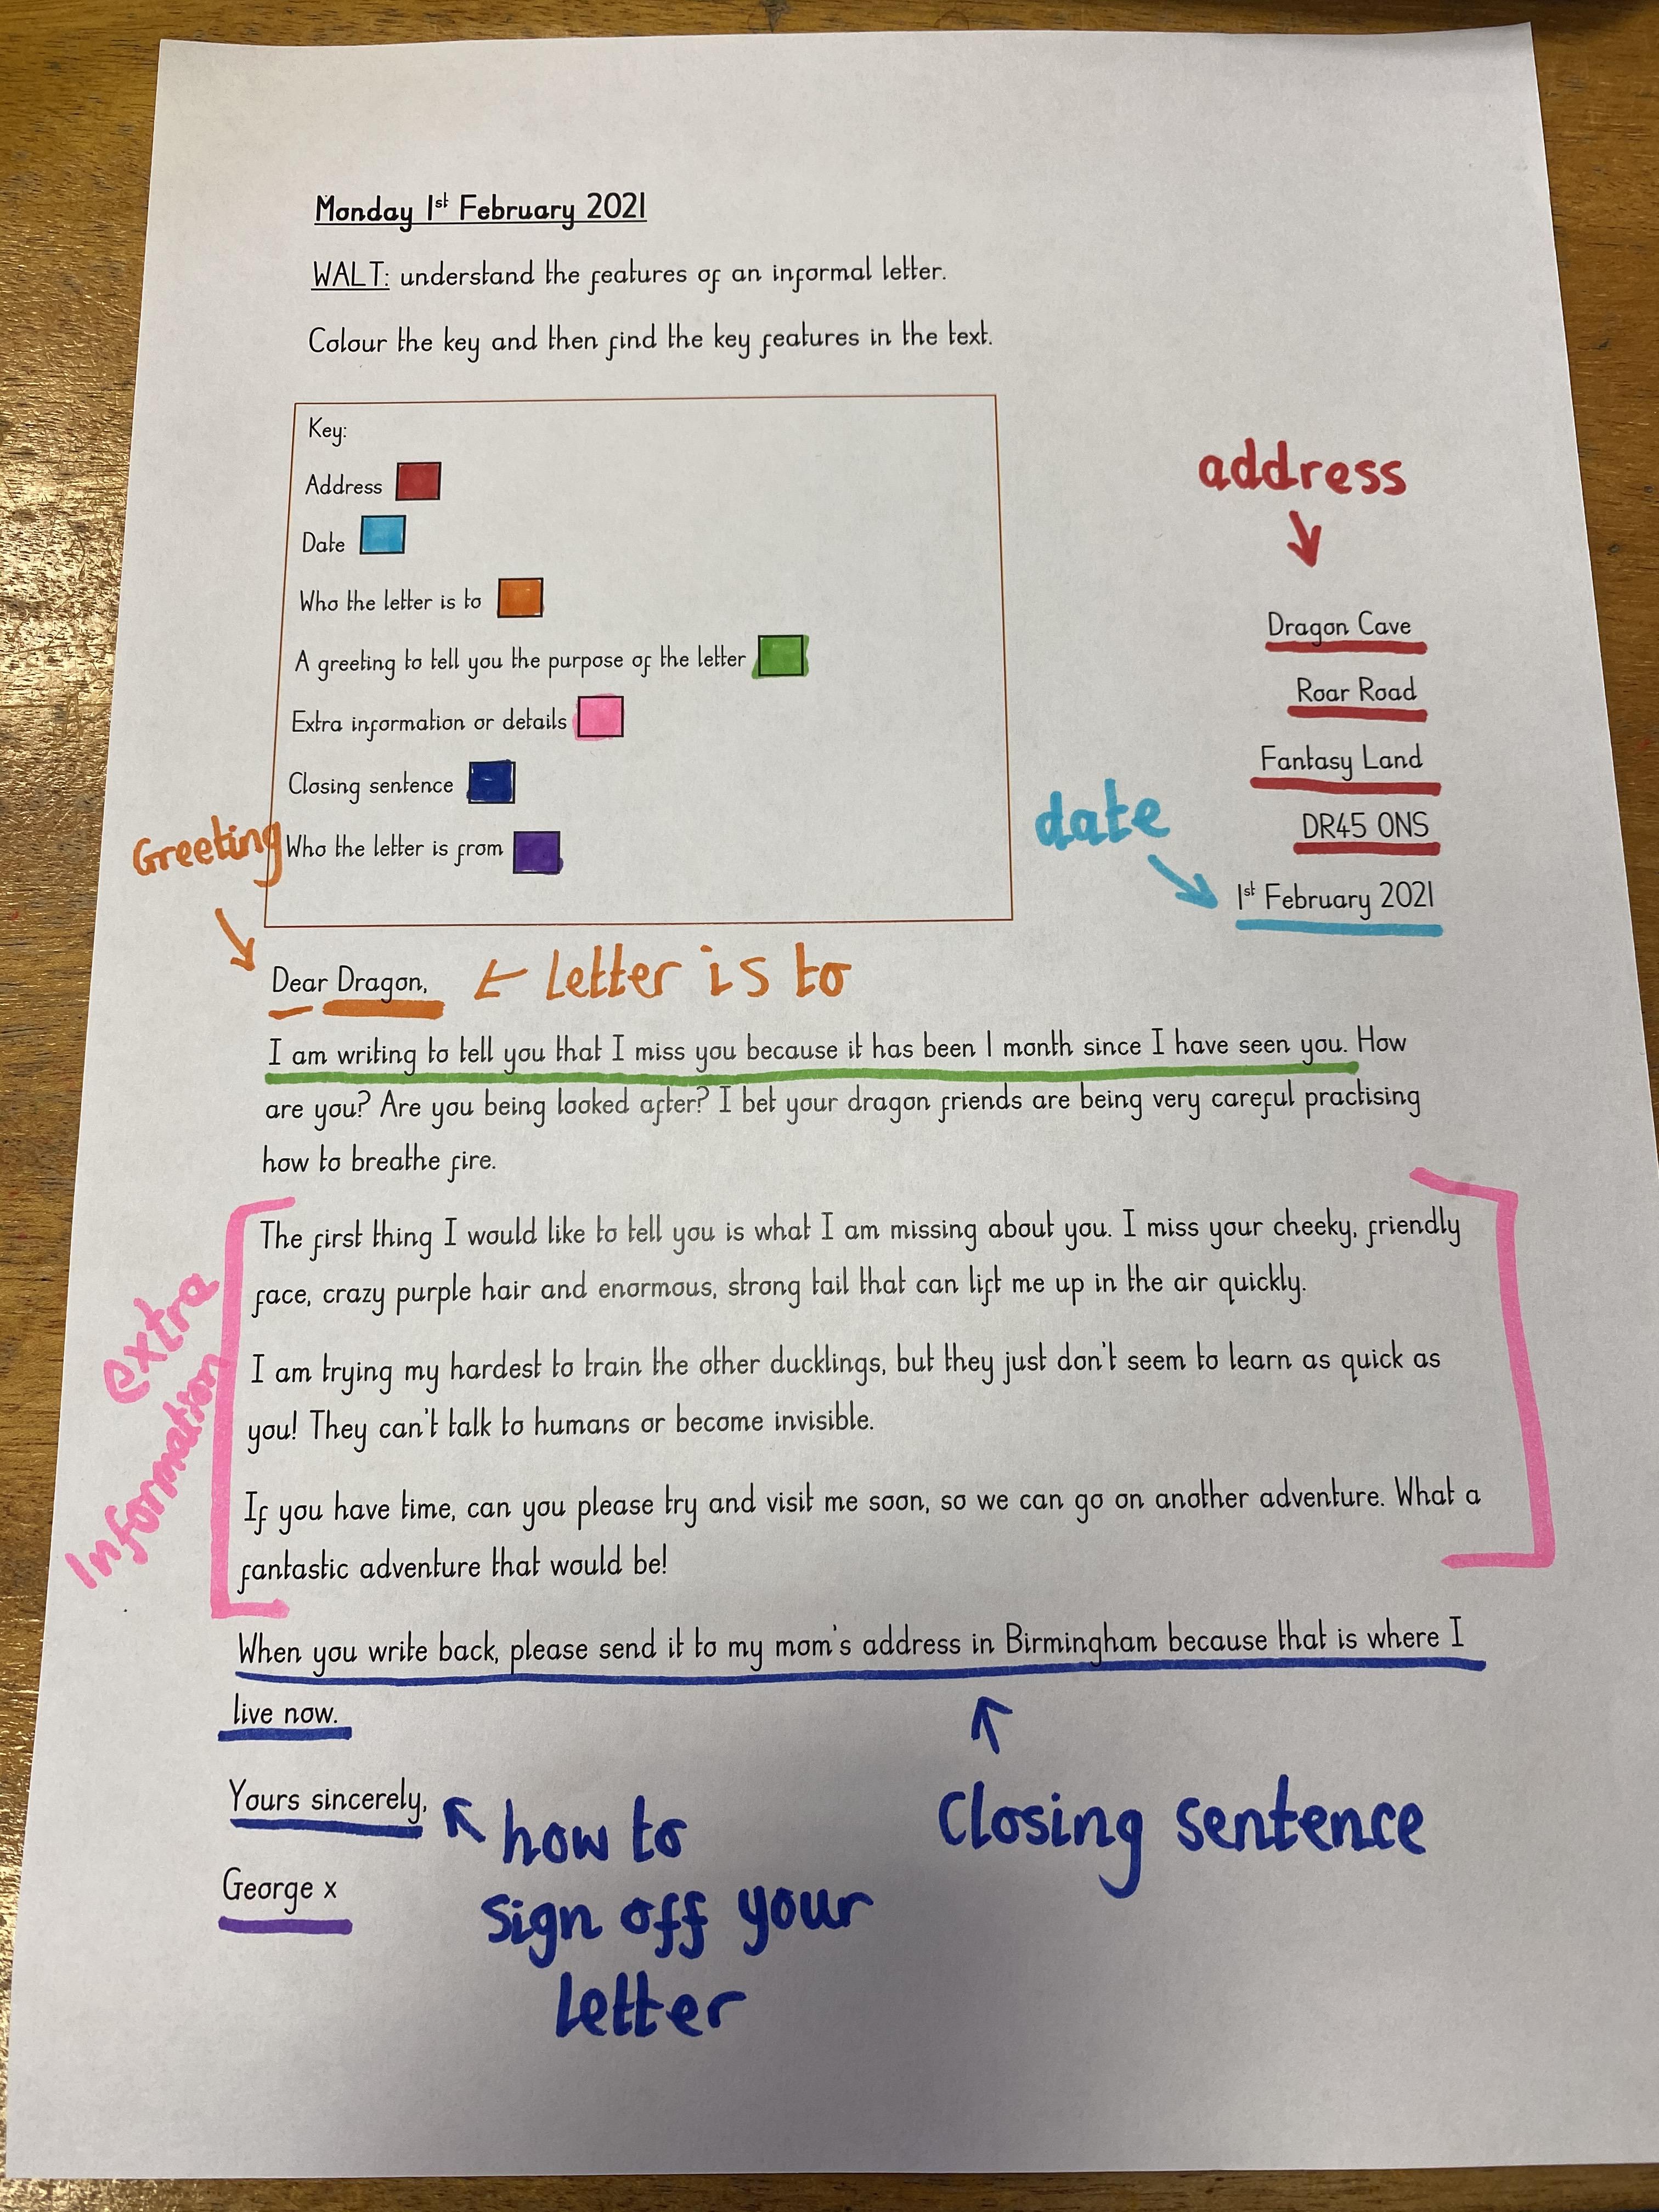 Monday 1st February 2021
WALT: understand the features of an informal letter.
Colour the key and then find the key features in the text.
Key:
Address
Date
Who the letter is to
A greeting to tell you the purpose of the letter
Extra information or details
Closing sentence
Who the letter is from
address
Dragon Cave
Roar Road
Fantasy Land
DR45 0NS
date
1st February 2021
Greeting
Dear Dragon,
letter is to
I am writing to tell you that I miss you because it has been 1 month since I have seen you. How
are you? Are you being looked after? I bet your dragon friends are being very careful practising
how to breathe fire.
extra
Information
The first thing I would like to tell you is what I am missing about you. I miss your cheeky, friendly
face, crazy purple hair and enormous, strong tail that can lift me up in the air quickly.
I am trying my hardest to train the other ducklings, but they just don't seem to learn as quick as
you! They can't talk to humans or become invisible.
If you have time, can you please try and visit me soon, so we can go on another adventure. What a
fantastic adventure that would be!
When you write back, please send it to my mom's address in Birmingham because that is where I
live now.
Closing sentence
Yours sincerely,
how to
sign off your
letter
George x